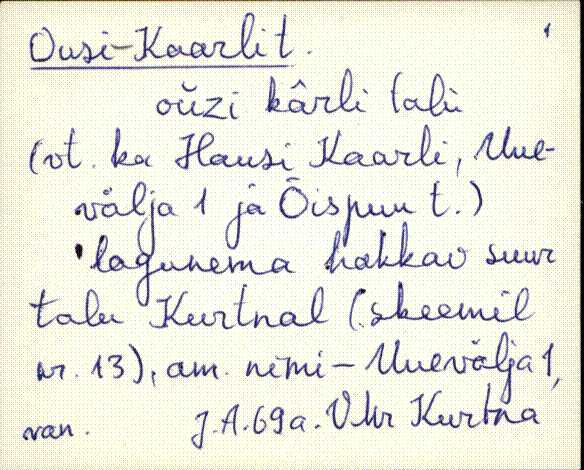 Ousi-Kaarli t. 1
oŭzi kârli talu
(vt. ka Hansi Kaarli, Uue-
välja 1 ja Õispuu t.)
lagunema hakkav suur
talu Kurtnal (skeemil
nr. 13), am. nimi - Uuevälja 1,
van. J.A. 69 a. VMr Kurtna